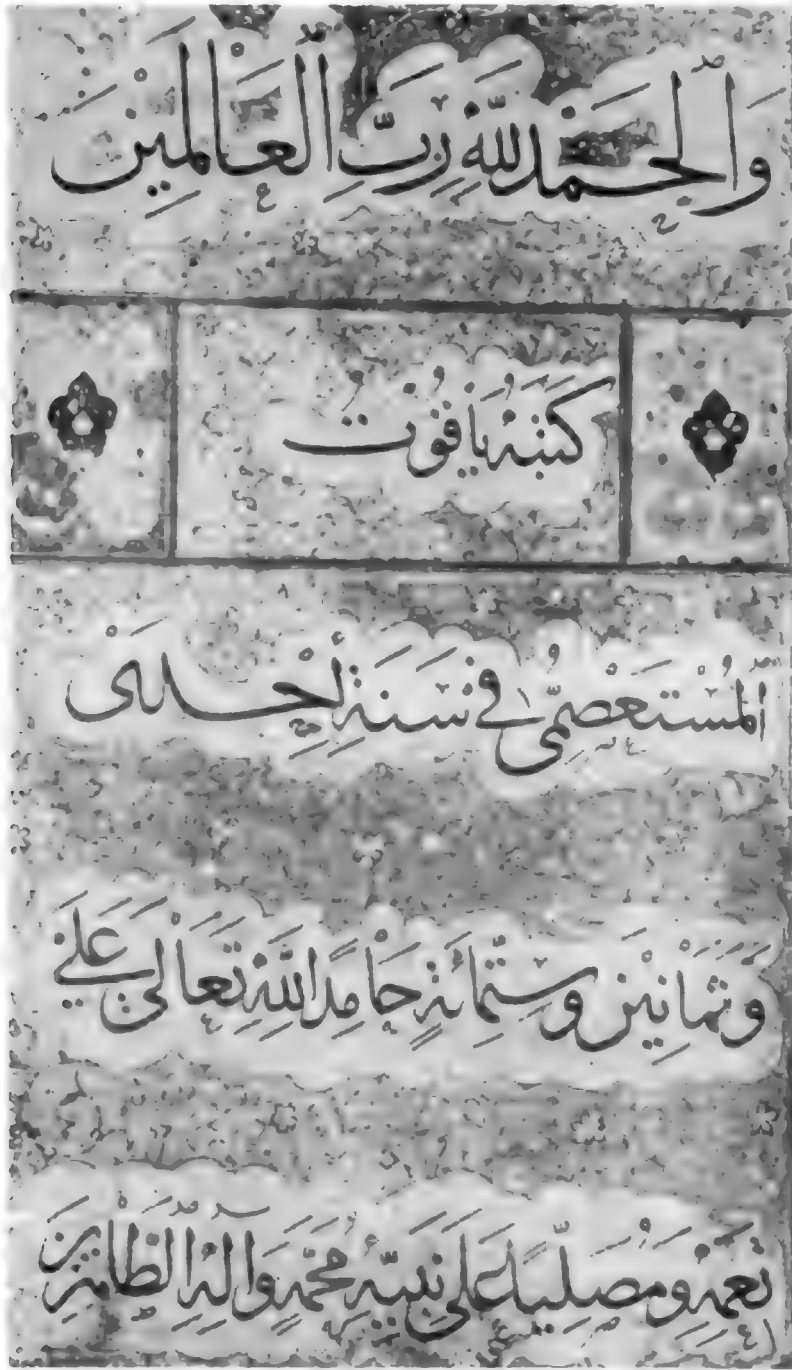 وَالْحَمْدُ لِلَّهِ رَبِّ الْعَالَمِينَ
كتبه ياقوت
المستعصمي في سنة إحدى
وثمانين وستمائة حامداً لله تعالى على
نعمه ومصلياً على نبيه محمد وآله الطاهرين